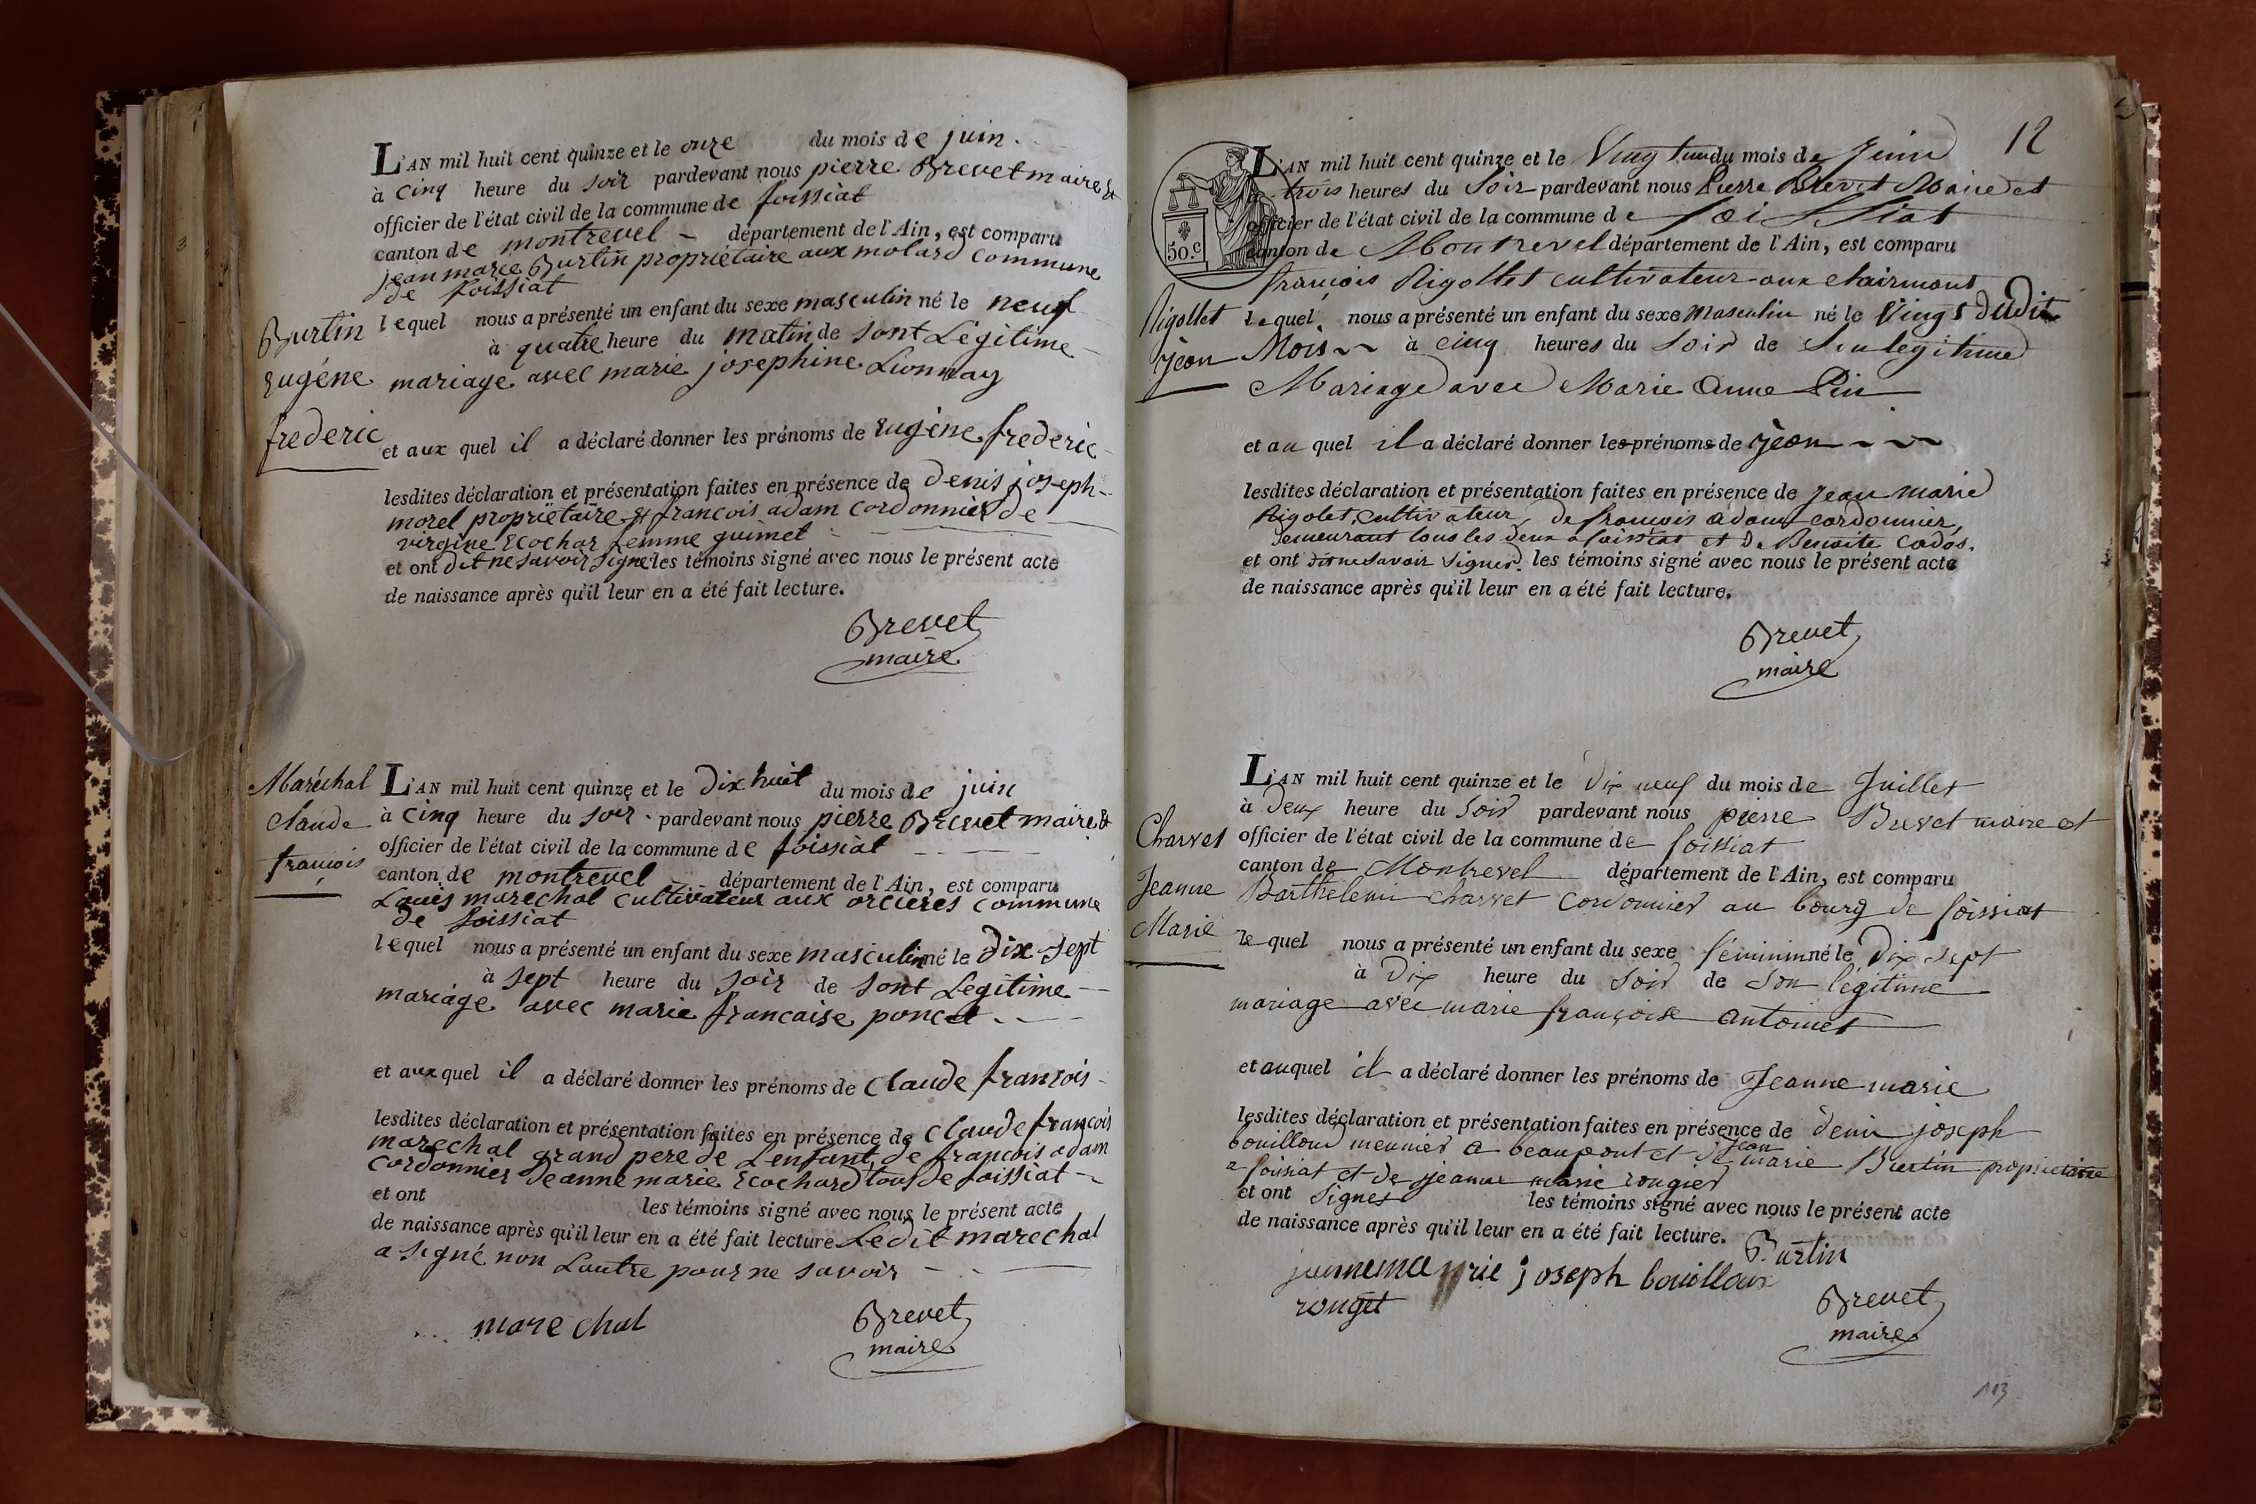 L'AN mil huit cent quinze et le onze du mois de juin
à cinq heure du soir pardevant nous pierre Brevet maire &
officier de l'état civil de la commune de foissiat
canton de montrevel département de l'Ain, est comparu
jean marie Burtin propriétaire aux molard commune
de foissiat
Burtin
Eugéne
frederic
lequel nous a présenté un enfant du sexe masculin né le neuf
à quatre heure du matin de sont Légitime
mariage avec marie josephine Lionnay
et aux quel il a déclaré donner les prénoms de Eugéne frederic
lesdites déclaration et présentation faites en présence de Denis joseph
morel propriétaire & francois adam cordonnier de
virgine Ecochar femme guimet
et ont dit ne savoir signé les témoins signé avec nous le présent acte
de naissance après qu'il leur en a été fait lecture.
Brevet
maire
Maréchal
Claude
françois
L'AN mil huit cent quinze et le Dix huit du mois de juin
à cinq heure du soir pardevant nous pierre Brevet maire &
officier de l'état civil de la commune de foissiat
canton de montrevel département de l'Ain, est comparu
Louis marechal cultivateur aux orcieres commune
de foissiat
lequel nous a présenté un enfant du sexe masculin né le dix-sept
à sept heure du soir de sont Légitime
mariage avec marie francaise poncet
et aux quel il a déclaré donner les prénoms de claude francois
lesdites déclaration et présentation faites en présence de claude francois
marechal grand pere de Lenfant, de francois adam
cordonnier deanne marie Ecochard tous de foissiat
et ont les témoins signé avec nous le présent acte
de naissance après qu'il leur en a été fait lecture Ledit marechal
a signé non Lautre pour ne savoir
marechal
Brevet
maire
12
50.c
L'AN mil huit cent quinze et le Vingt un du mois de juin
à trois heures du soir pardevant nous Pierre Brevet Maire et
officier de l'état civil de la commune de foissiat
canton de Montrevel département de l'Ain, est comparu
françois Rigollet cultivateur aux clairmont
Rigollet
jean
lequel nous a présenté un enfant du sexe Masculin né le Vingt dudit
Mois à cinq heures du soir de son legitime
Mariage avec Marie Anne Pin
et au quel il a déclaré donner les prénoms de jean
lesdites déclaration et présentation faites en présence de jean marie
Rigolet, cultivateur, de francois adam cordonnier,
demeurant tous les deux a foissiat et de Benoite Cados.
et ont dit ne savoir signer. les témoins signé avec nous le présent acte
de naissance après qu'il leur en a été fait lecture.
Brevet
maire
Charvet
Jeanne
Marie
L'AN mil huit cent quinze et le Dix neuf du mois de Juillet
à Deux heure du soir pardevant nous pierre Brevet maire et
officier de l'état civil de la commune de foissiat
canton de Montrevel département de l'Ain, est comparu
Barthelemi charvet cordonnier au bourg de foissiat
lequel nous a présenté un enfant du sexe féminin né le Dix sept
à Dix heure du soir de son légitime
mariage avec marie françoise antoinet
et auquel il a déclaré donner les prénoms de Jeanne marie
lesdites déclaration et présentation faites en présence de denis joseph
bouilloud meunier a beaupont et de jean marie Burtin propriétaire
a foissiat et de jeanne marie rougier
et ont signes les témoins signé avec nous le présent acte
de naissance après qu'il leur en a été fait lecture.
Burtin
jannemarrie joseph bouilloux
rouget
Brevet
maire
113